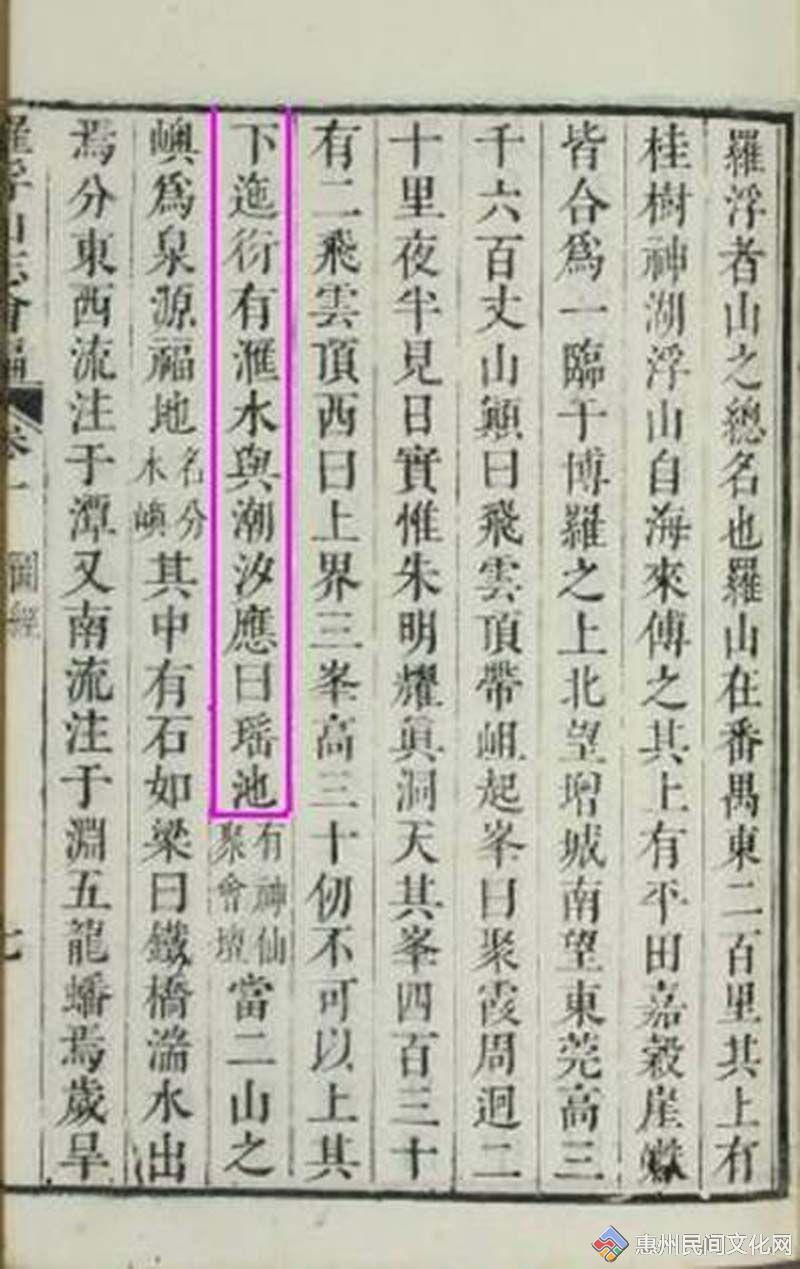 羅浮者山之總名也羅山在番禺東二百里其上有
桂樹神湖浮山自海來傅之其上有平田嘉穀崖巘
皆合爲一臨于博羅之上北望增城南望東莞高三
千六百丈山顚曰飛雲頂帶岨起峯曰聚霞周迴二
十里夜半見日實惟朱明耀眞洞天其峯四百三十
有二飛雲頂西曰上界三峯高三十仞不可以上其
下迤衍有滙水與潮汐應曰瑶池有神仙聚會壇當二山之
嶼爲泉源福地名分水嶼其中有石如梁曰鐵橋湍水出
焉分東西流注于潭又南流注于淵五龍蟠焉歲旱
羅浮山志會編 卷一 圖經 七
惠州民间文化网